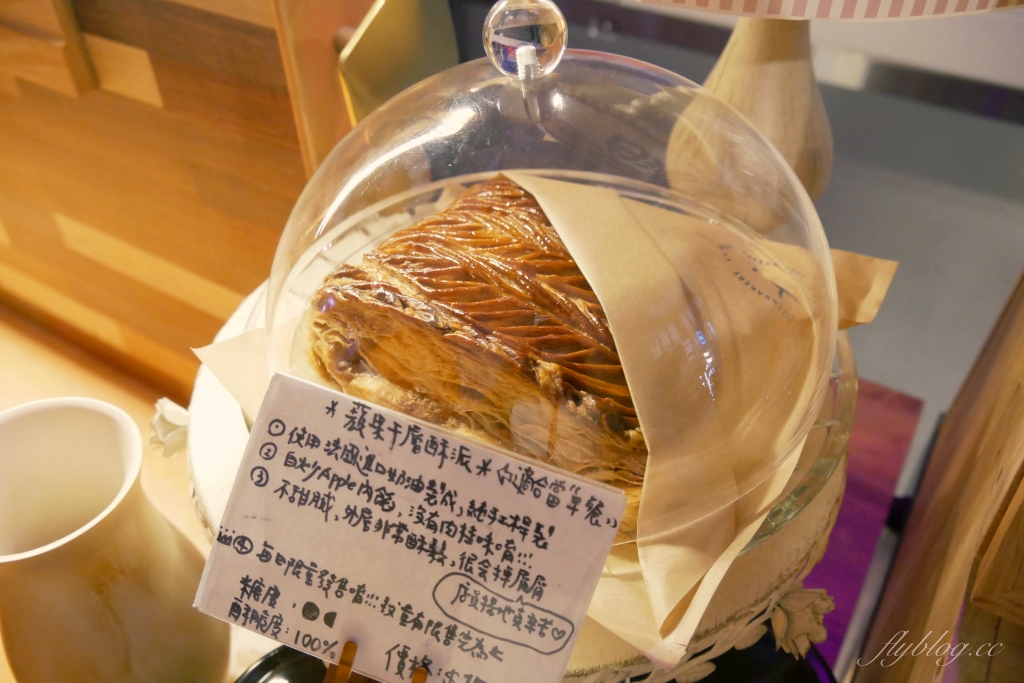 *蘋果千層酥派* (適合當早餐)
① 使用法國進口奶油製成,純手工桿製
② 自炒Apple內餡,沒有肉桂味唷!!!
③ 不甜膩,外層非常酥鬆,很會掉屑屑
店員掃地真辛苦♡
④ 每日限量發售唷!!!數量有限售完為止
糖度:
酥脆度:100%
價格:$
flyblog.cc